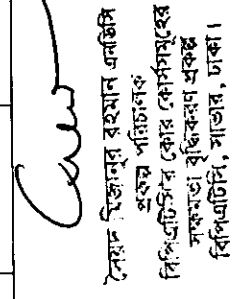 সৈয়দ মিজানুর রহমান এনডিসি
প্রকল্প পরিচালক
বিপিএটিসির কোর কোর্সসমূহের
সক্ষমতা বৃদ্ধিকরণ প্রকল্প
বিপিএটিসি, সাভার, ঢাকা।